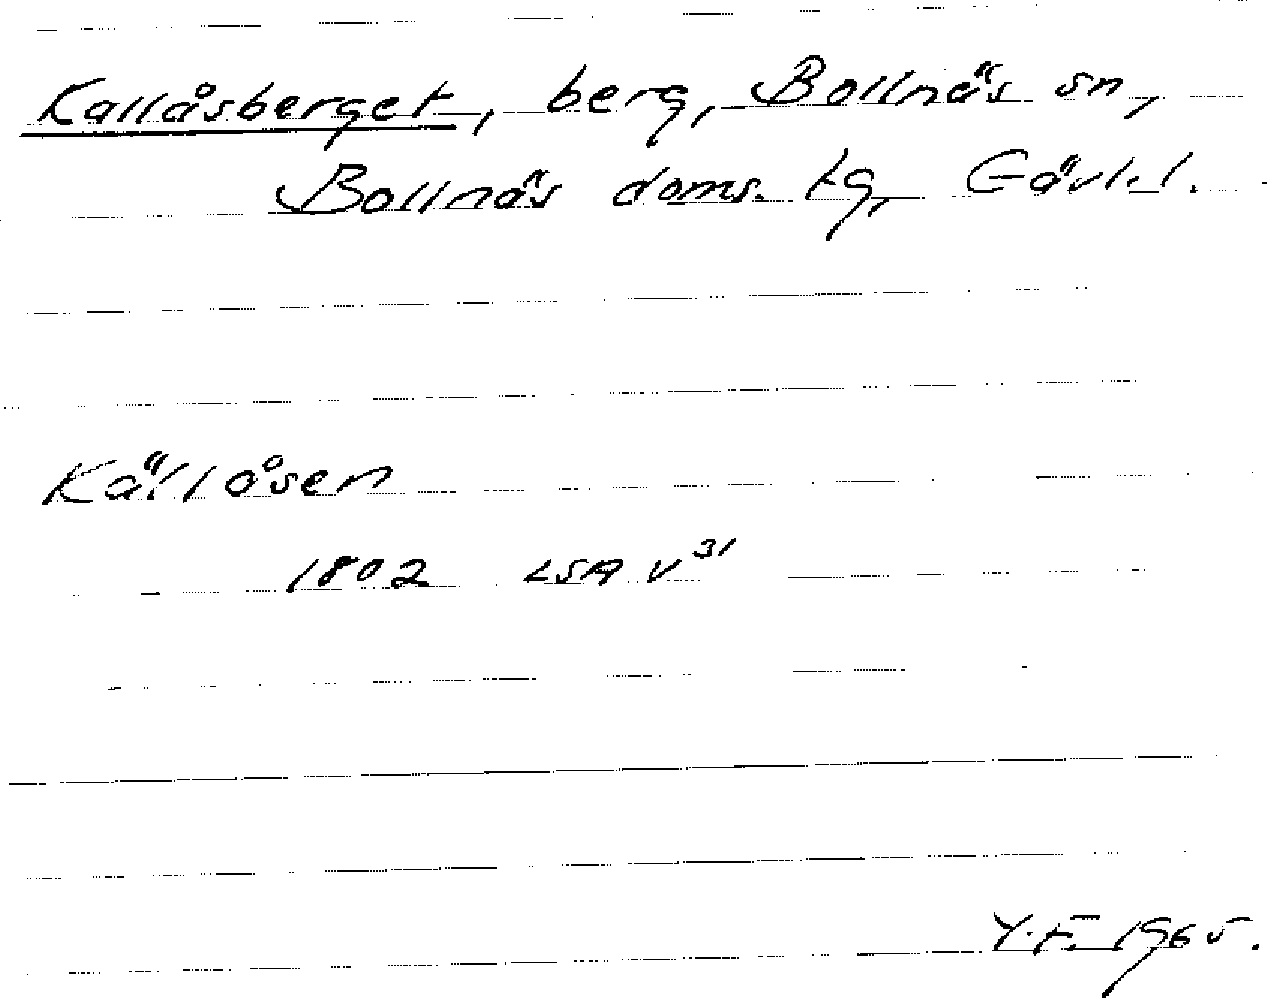 Kallåsberget, berg, Bollnäs sn,
Bollnäs doms. tg, Gävl.l.
Källåsen
1802 LSA V³¹
Y.F. 1965.